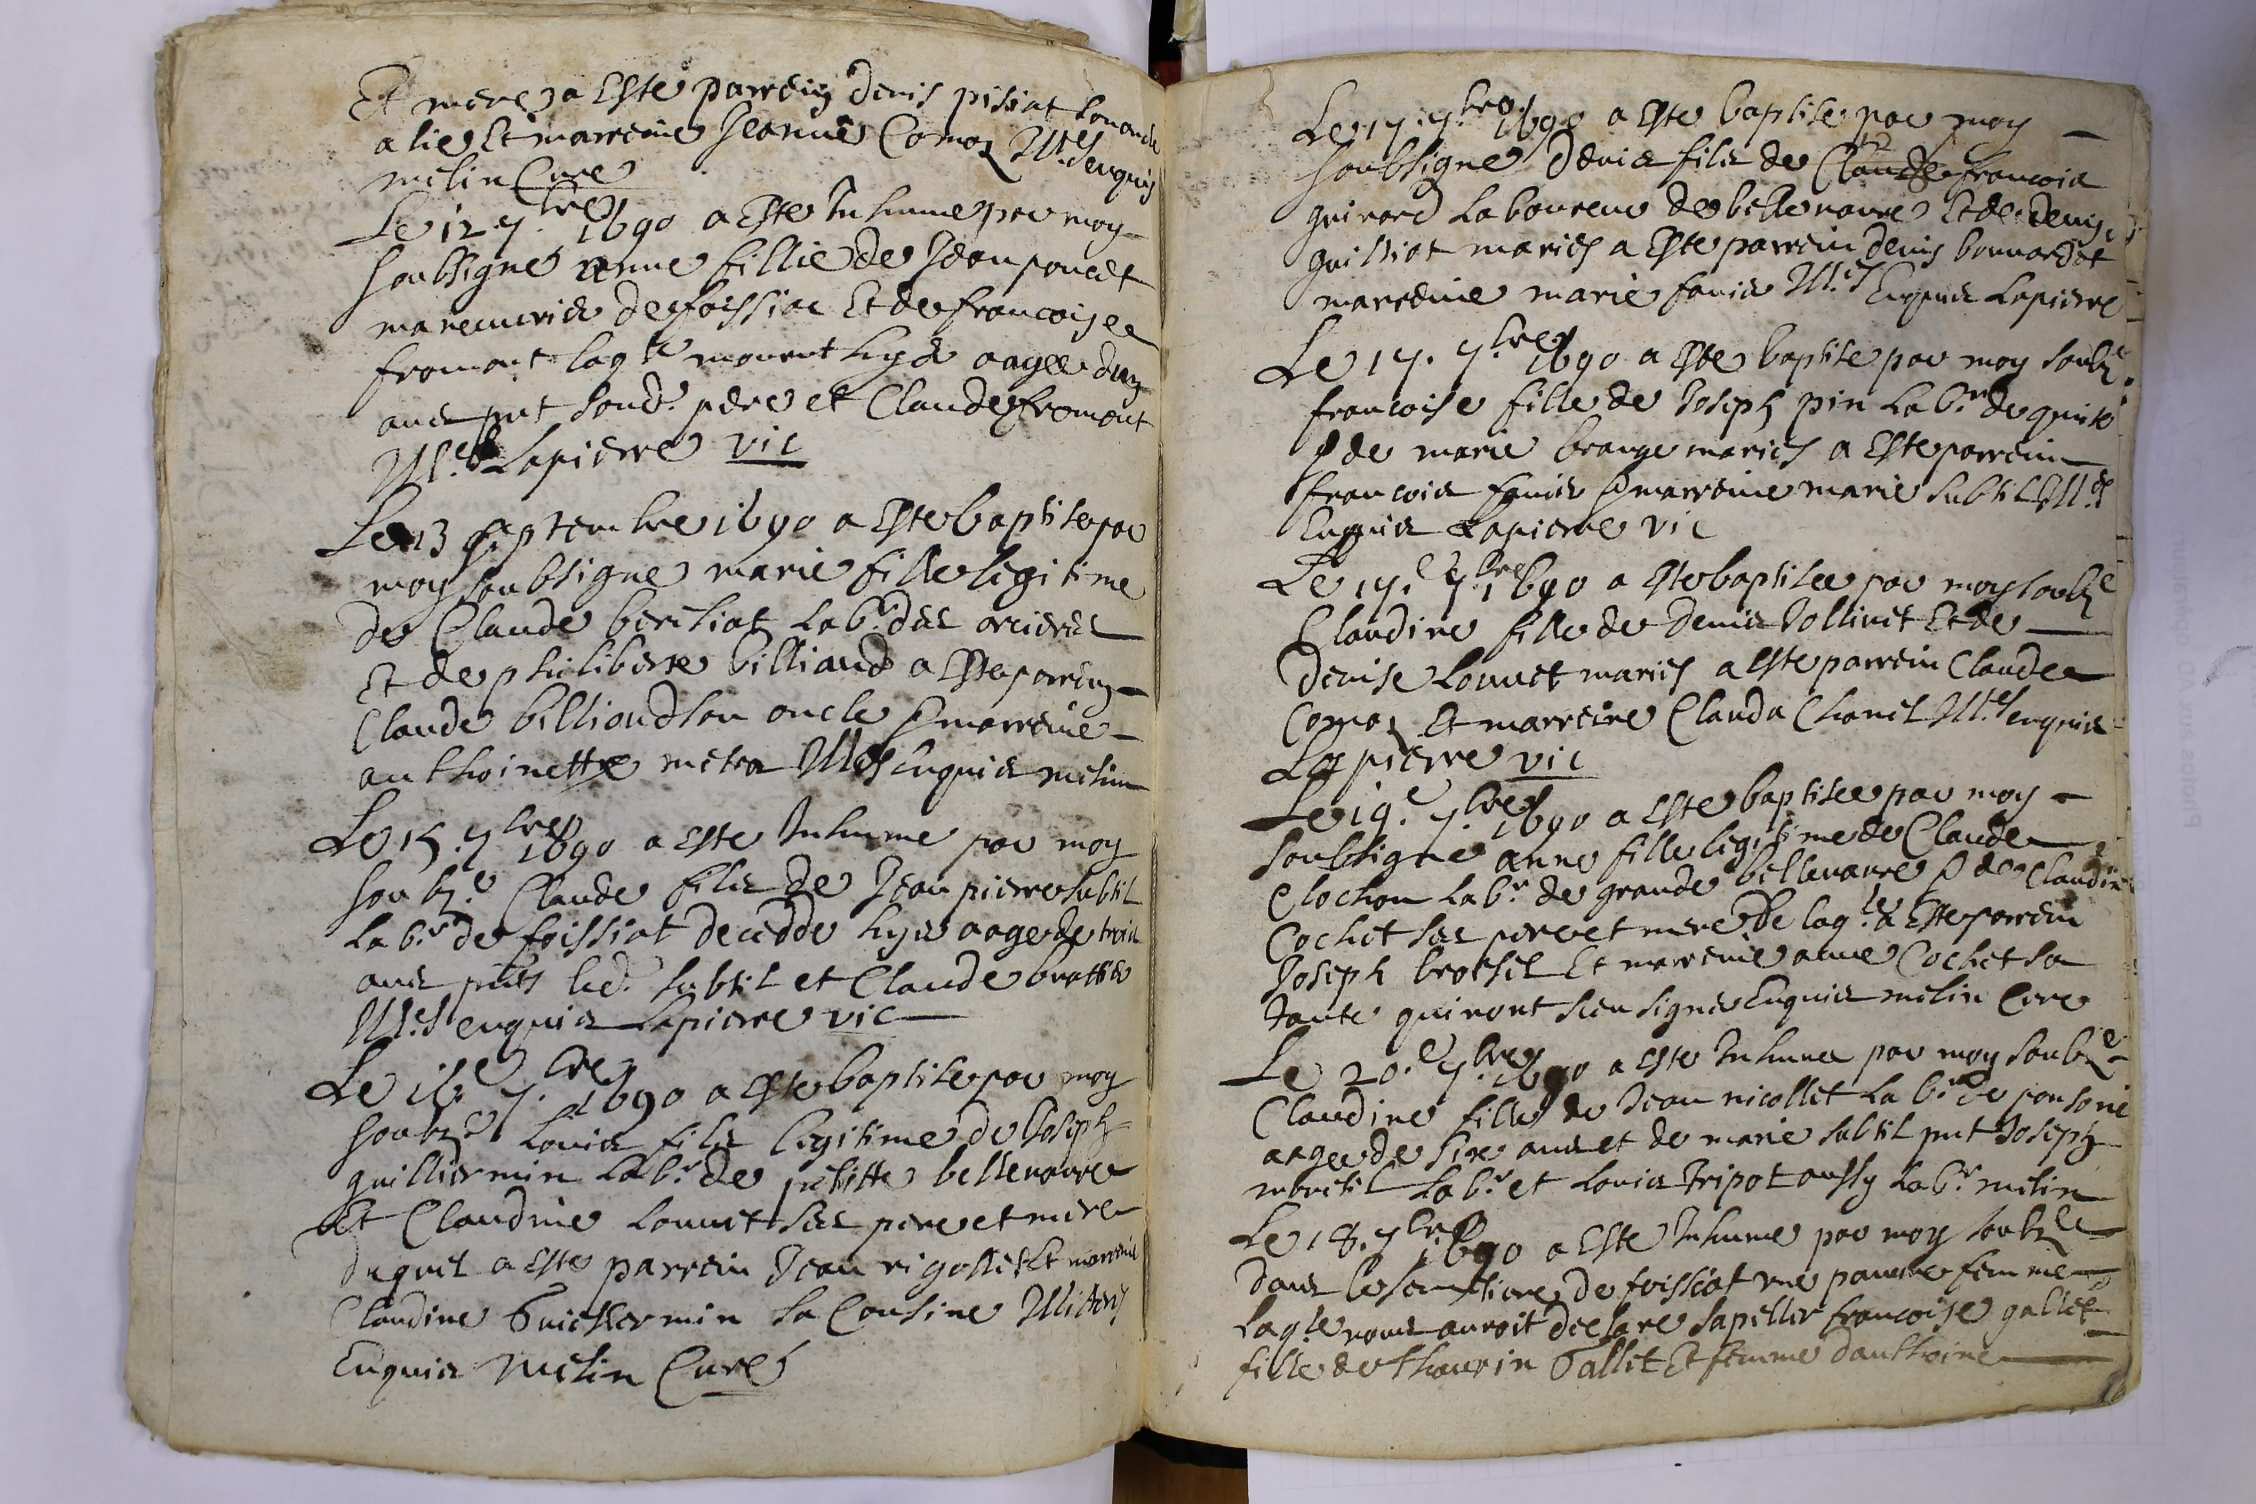 Et mere a Este parrein Denis pisiat son oncle
alie Et marreine Jeanne Comas Ill.es enquis
melin Cure
Le 12 7.bre 1690 a Este Inhume par moy
soubsigne anne fillie de Jean poncet
manecuvrier de foissiat Et de francoise
fromont laq.le mourut hyer aagee dun
ans pnt sond. pere et Claude fromont
Ill.es Lapierre vic
Le 13 septembre 1690 a Este baptise par
moy soubsigne marie fille legitime
de Claude berthiat Lab.r des orcieres
Et de philiberte billiaud a Este parrein
Claude billioud son oncle & marreine
anthoinette metra Illes Enquis melin
Le 15. 7.bre 1690 a Este Inhume par moy
soubz.e Claude fils de Jean pierre subtil
Lab.r de foissiat decedde hyer aage de trois
ans pnts led. subtil et Claude brattie
Ill.es enquis Lapierre vic
Le 16.e 7.bre 1690 a Este baptise par moy
soubz.e Louis fils legitime de Joseph
guilliermin Lab.r de petitte bellevavre
Et Claudine Louuet ses pere et mere
duquel a Este parrein Jean rigollet Et marreine
Claudine Guilliermin sa Cousine Illiteres
Enquis Melin Curé
Le 17. 7.bre 1690 a Este baptise par moy
soubsigne Denis fils de francois
guirard laboureur de bellevavre Et de Denise
guilliat maries a Este parrein denis bonnardet
marreine marie favier Ill.es Enquis Lapierre
Le 17. 7.bre 1690 a Este baptise par moy soubz.e
francoise fille de Joseph pin Lab.r de
& de marie brange maries a Este parrein
francois favier & marreine marie subtil Ill.es
Enquis Lapierre vic
Le 17.e 7.bre 1690 a Este baptisee par moy soubz.e
Claudine fille de Denis Jollivet Et de
Denise Louuet maries a Este parrein Claude
Comas Et marreine Clauda Chanel Ill.es enquis
Lapierre vic
Le 19.e 7.bre 1690 a Este baptisee par moy
soubsigne anne fille legitime de Claude
Clochon Lab.r de grande bellevavre & de Claudine
Cochet ses pere et mere De laq.le a Este parrein
Joseph brossel Et marreine anne Cochet sa
tante qui nont sceu signer Enquis melin Cure
Le 20.e 7.bre 1690 a Este Inhumee par moy soubz.e
Claudine fille de Jean nicollet Lab.r de
aagee de six ans et de marie subtil pnt Joseph
Lab.r et Louis Tripot aussy Lab.r melin
Le 18. 7.bre 1690 a Este Inhume par moy soubz.e
dans le semetiere de foissiat une pauvre femme
Laq.le nous auroit declare sapeller francoise gallet
fille de thaurin Gallet Et femme danthoine